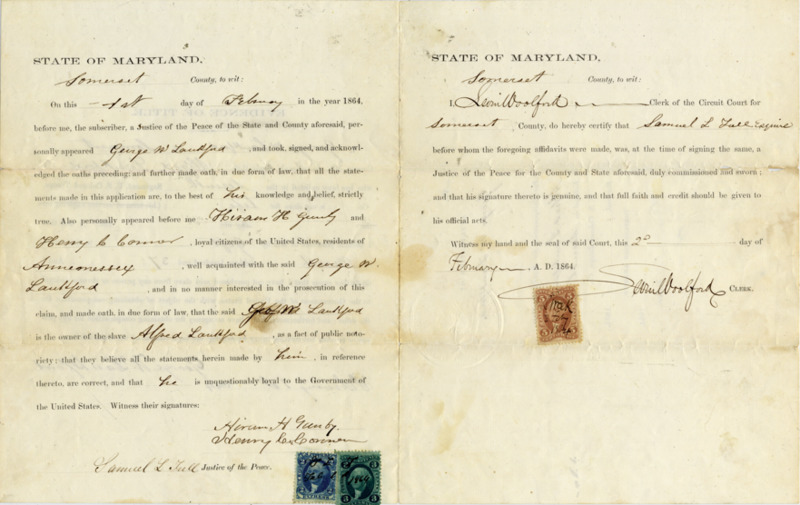 STATE OF MARYLAND,
Somerset County, to wit:
On this 1st day of February in the year 1864,
before me, the subscriber, a Justice of the Peace of the State and County aforesaid, per-
sonally appeared George W Lankford , and took, signed, and acknowl-
edged the oaths preceding; and further made oath, in due form of law, that all the state-
ments made in this application are, to the best of his knowledge and belief, strictly
true. Also personally appeared before me Hiram H Gunby and
Henry C Connor , loyal citizens of the United States, residents of
Annemessex , well acquainted with the said George W
Lankford , and in no manner interested in the prosecution of this
claim, and made oath, in due form of law, that the said W Lankford
is the owner of the slave Alfred Lankford , as a fact of public noto-
riety; that they believe all the statements herein made by him , in reference
thereto, are correct, and that he is unquestionably loyal to the Government of
the United States. Witness their signatures:
Hiram H Gunby
Henry C Connor
Samuel L Tull Justice of the Peace.
STATE OF MARYLAND,
Somerset County, to wit:
I, Levin Woolford Clerk of the Circuit Court for
Somerset County, do hereby certify that Samuel L Tull Esquire
before whom the foregoing affidavits were made, was, at the time of signing the same, a
Justice of the Peace for the County and State aforesaid, duly commissioned and sworn;
and that his signature thereto is genuine, and that full faith and credit should be given to
his official acts.
Witness my hand and the seal of said Court, this 2d day of
February A. D. 1864.
Levin Woolford CLERK.